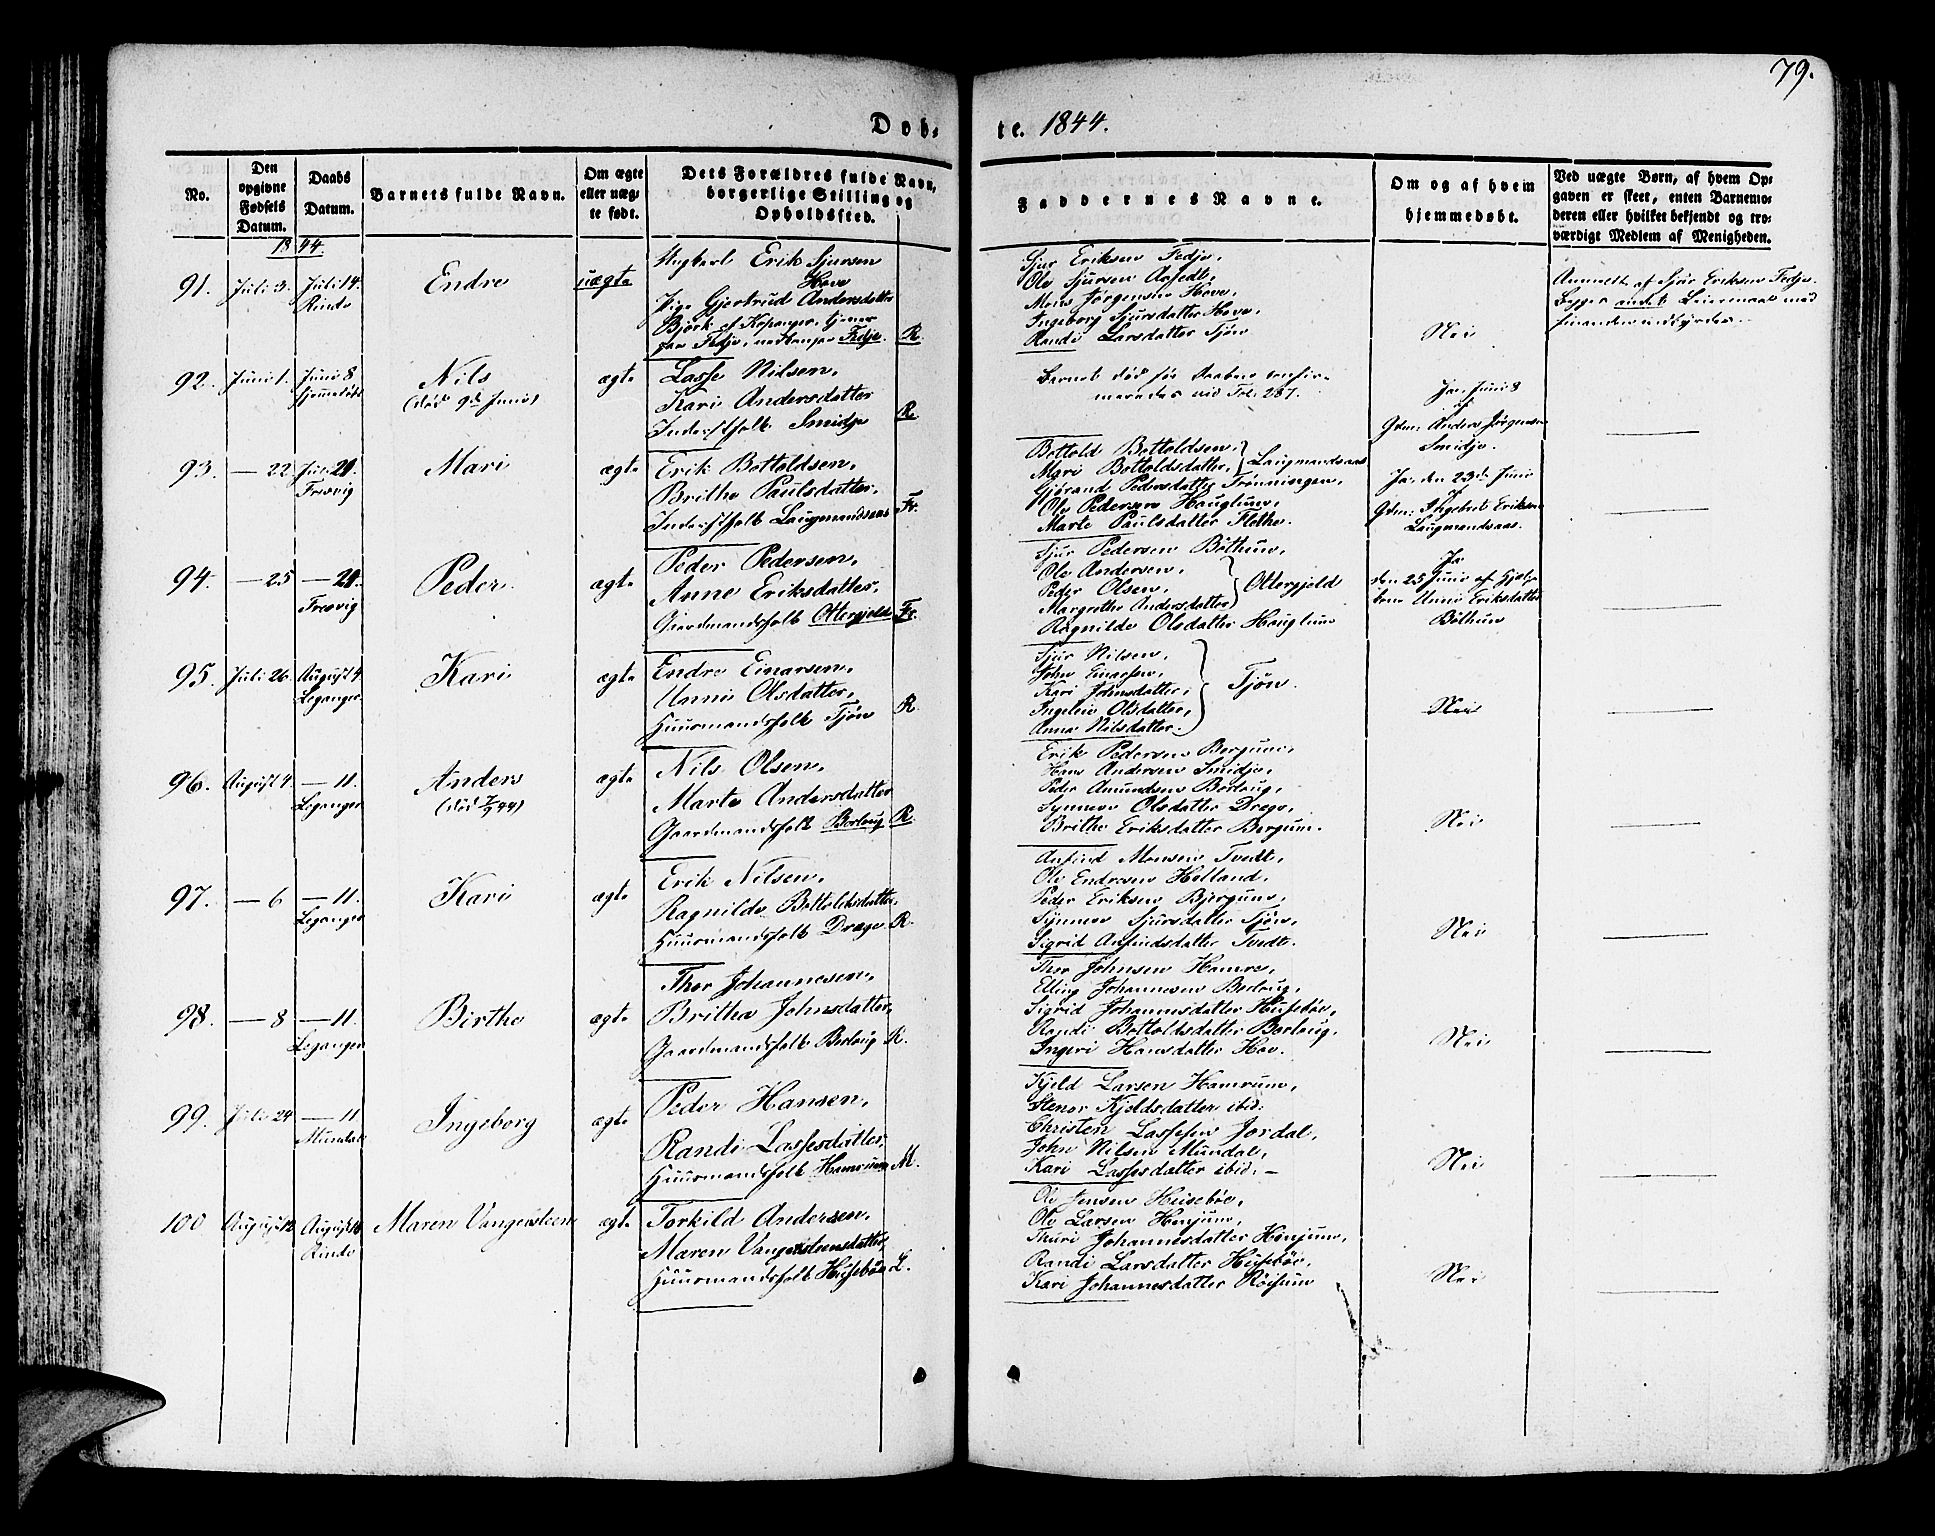 79.
Døb-
te. 1844.
No.
Den opgivne Fødsels Datum.
Daabs Datum.
Barnets fulde Navn.
Om ægte eller uæg-te født.
Dets Forældres fulde Navn, borgerlige Stilling og Opholdssted.
Faddernes Navne.
Om og af hvem hjemmedøbt.
Ved uægte Børn, af hvem Op-
gaven er skeet, enten Barnemo-
deren eller hvilket bekjendt og tro-
værdigt Medlem af Menigheden.
1844.
91. Juli 3. Juli 14. Rinde
Endre
uægte
Ungkarl Erik Sjursen
Hove
Pige Gjertrud Andersdatter
Bjørk af Kopanger, tjener
paa Fedje, R.
Sjur Eriksen Fedje,
Ole Sjursen
Mons Jørgensen Hove,
Ingeborg Sjursdatter Hove,
Randi Larsdatter Tjøn
Nei
Anmeldt af Sjur Eriksen Fedje.
Begges andet Leiermaal med
92. Juni 1. Juni 8
Nils
(død 9de Juni)
ægte
Lasse Nilsen,
Kari Andersdatter
Inderstfolk Smidje R.
Barnet død før Daaben
Fol. 287.
Ja, Juni 8
af
Gdm: Anders Jørgensen
Smidje.
93. — 22 Juli 21. Fresvig
Mari
ægte
Erik Bottoldsen,
Brithe Paulsdatter,
Inderstfolk Laugmandsaas Fr.
Bottold Bottoldsen,
Mari Bottoldsdatter, } Laugmandsaas
Gjørand Pedersdatter Trønningen,
Ole Pedersen Hauglum,
Marte Paulsdatter Flethe.
Ja, den 23de Juni
af
Gdm: Ingebret Eriksen
Laugmandsaas.
94. — 25 — 21. Fresvig
Peder.
ægte
Peder Pedersen,
Anne Eriksdatter,
Gaardmandsfolk Ottergjeld Fr.
Sjur Pedersen Bøthun,
Ole Andersen,
Peder Olsen, } Ottergjeld
Margrethe Andersdatter
Ragnilde Olsdatter Hauglum
Ja
den 25 Juni af
Unni Eriksdatter
Bøthun
95. Juli 26. August 4 Leganger
Kari
ægte
Endre Einarsen,
Unni Olsdatter,
Huusmandsfolk Tjøn R
Sjur Nilsen,
John Einarsen,
Kari Johnsdatter, } Tjøn.
Ingeleiv Olsdatter,
Anna Nilsdatter.
Nei
96. August 4 — 11. Leganger
Anders
ægte
Nils Olsen,
Marte Andersdatter
Gaardmandsfolk Borlaug R.
Erik Pedersen Bergum,
Hans Andersen Smidje,
Peder Amundsen Borlaug,
Synneve Olsdatter Drege,
Brithe Eriksdatter Bergum.
Nei
97. — 6 — 11. Leganger
Kari
ægte
Erik Nilsen,
Ragnilde Bottoldsdatter,
Huusmandsfolk Drege R.
Anfind Monsen Tvedt,
Ole Endresen Helland,
Peder Eriksen Bjergum,
Synneve Sjursdatter Tjøn,
Sigrid Anfindsdatter Tvedt.
Nei
98. — 8 — 11. Leganger
Birthe
ægte
Thor Johannesen,
Britha Johnsdatter,
Gaardmandsfolk Borlaug R.
Thor Johnsen Hamre,
Elling Johannesen Borlaug,
Sigrid Johannesdatter Husebøe,
Randi Bottoldsdatter Borlaug,
Ingeri Hansdatter Hov.
Nei
99. Juli 24 — 11 Mundal
Ingeborg
ægte
Peder Hansen,
Randi Lassesdatter
Huusmandsfolk Hamrum M.
Kjeld Larsen Hamrum,
Stenor Kjeldsdatter ibid:
Christen Lassesen Jordal,
John Nilsen Mundal,
Kari Lassesdatter ibid. —
Nei
100 August 12 August 18 Rinde
Maren Vangensteen
ægte
Torkild Andersen,
Maren Vangensteensdatter,
Huusmandsfolk Husebøe L.
Ole Jensen Husebøe,
Ole Larsen Henjum,
Thuri Johannesdatter Henjum,
Randi Larsdatter Husebøe,
Kari Johannesdatter Røisum
Nei